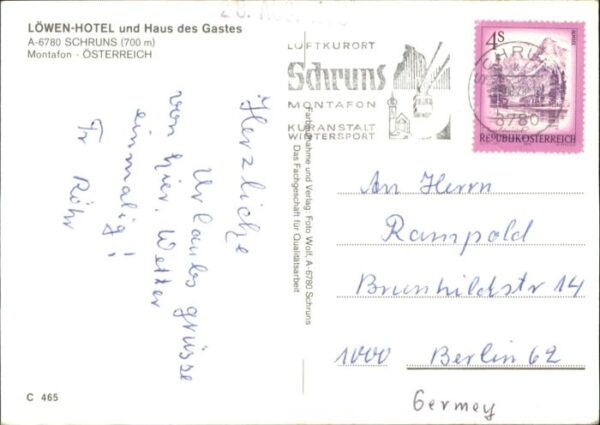 LÖWEN-HOTEL und Haus des Gastes
A-6780 SCHRUNS (700 m)
Montafon · ÖSTERREICH
Herzliche
Urlaubsgrüsse
von hier. Wetter
einmalig!
Fr Röhr
C 465
Farbaufnahme und Verlag: Foto Wolf, A-6780 Schruns
Das Fachgeschäft für Qualitätsarbeit
LUFTKURORT
Schruns
MONTAFON
KURANSTALT
WINTERSPORT
4S
6780
REPUBLIK ÖSTERREICH
An Herrn
Rampold
Brunhildstr 14
1000 Berlin 62
Germey